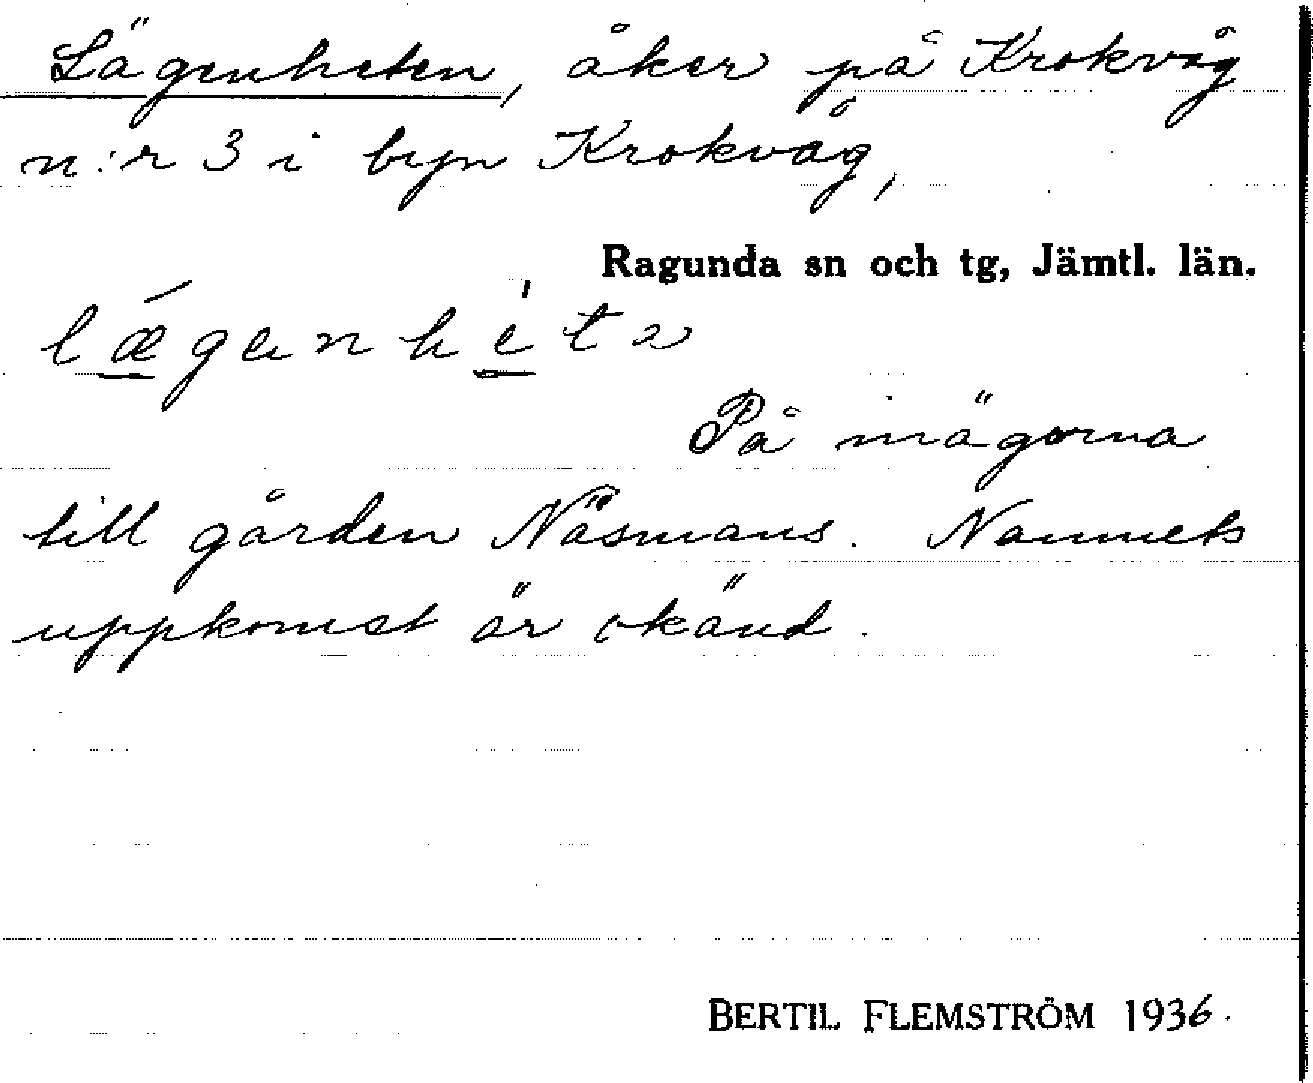 Lägenheten, åker på Krokvåg
n:r 3 i byn Krokvåg,
Ragunda sn och tg, Jämtl. län.
lǽgenhéta
På inägorna
till gården Näsmans. Namnets
uppkomst är okänd.
BERTIL FLEMSTRÖM 1936.